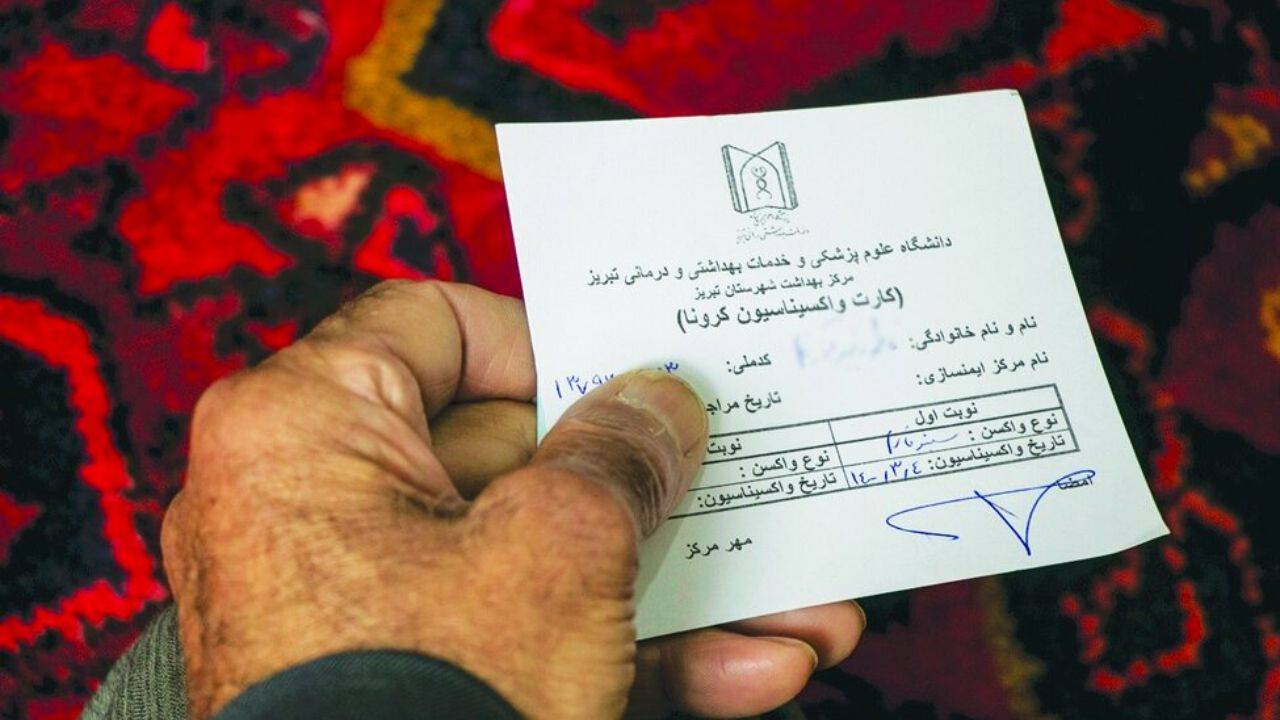 دانشگاه علوم پزشکی و خدمات بهداشتی و درمانی تبریز
مرکز بهداشت شهرستان تبریز
(کارت واکسیناسیون کرونا)
نام و نام خانوادگی: کدملی:
نام مرکز ایمنسازی: تاریخ
نوبت اول
نوع واکسن : سینوفارم نوع واکسن :
تاریخ واکسیناسیون: ۱۴۰۰,۳,۴ تاریخ واکسیناسیون:
امضا
مهر مرکز